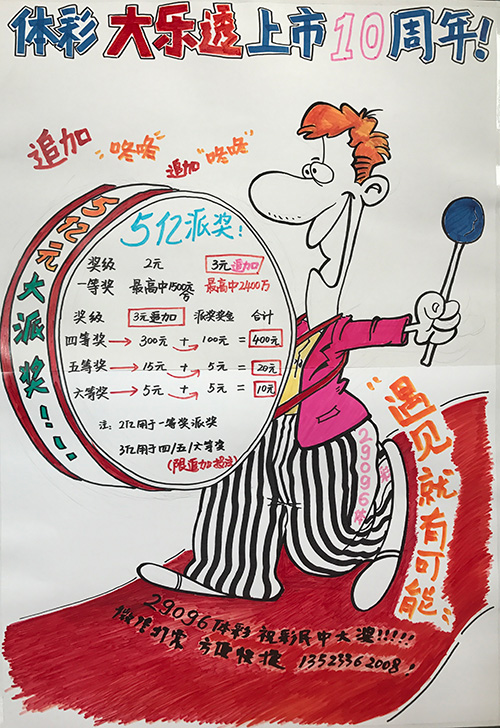 体彩 大乐透 上市10周年!
追加 "咚咚" 追加 "咚咚"
5亿元大派奖!!!
5亿派奖!
奖级 2元 3元追加
一等奖 最高中1500万元 最高中2400万
奖级 3元追加 派奖奖金 合计
四等奖 → 300元 + 100元 = 400元
五等奖 → 15元 + 5元 = 20元
六等奖 → 5元 + 5元 = 10元
注: 2亿用于一等奖派奖
3亿用于四/五/六等奖
(限追加投注)
29096体彩
"遇见就有可能"
29096体彩 祝彩民中大奖!!!!!
微信打票 方便快捷 13523362008!